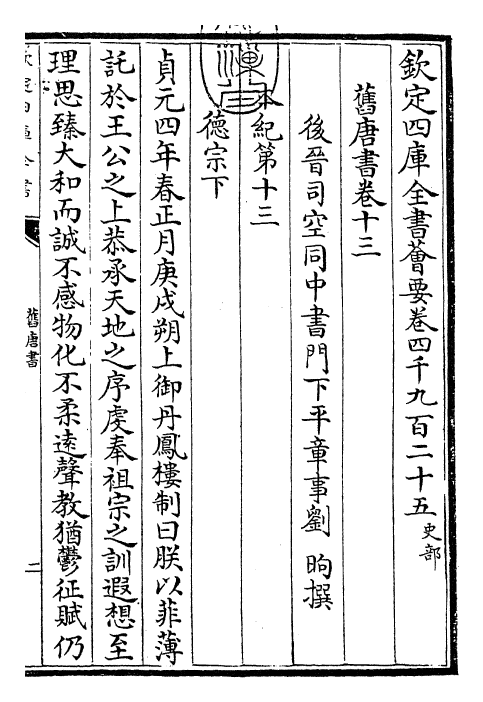 欽定四庫全書薈要卷四千九百二十五 史部
舊唐書卷十三
後晉司空同中書門下平章事劉 昫撰
本紀第十三
德宗下
貞元四年春正月庚戌朔上御丹鳳樓制曰朕以菲薄
託於王公之上恭承天地之序虔奉祖宗之訓遐想至
理思臻大和而誠不感物化不柔遠聲教猶鬱征賦仍
舊唐書
二